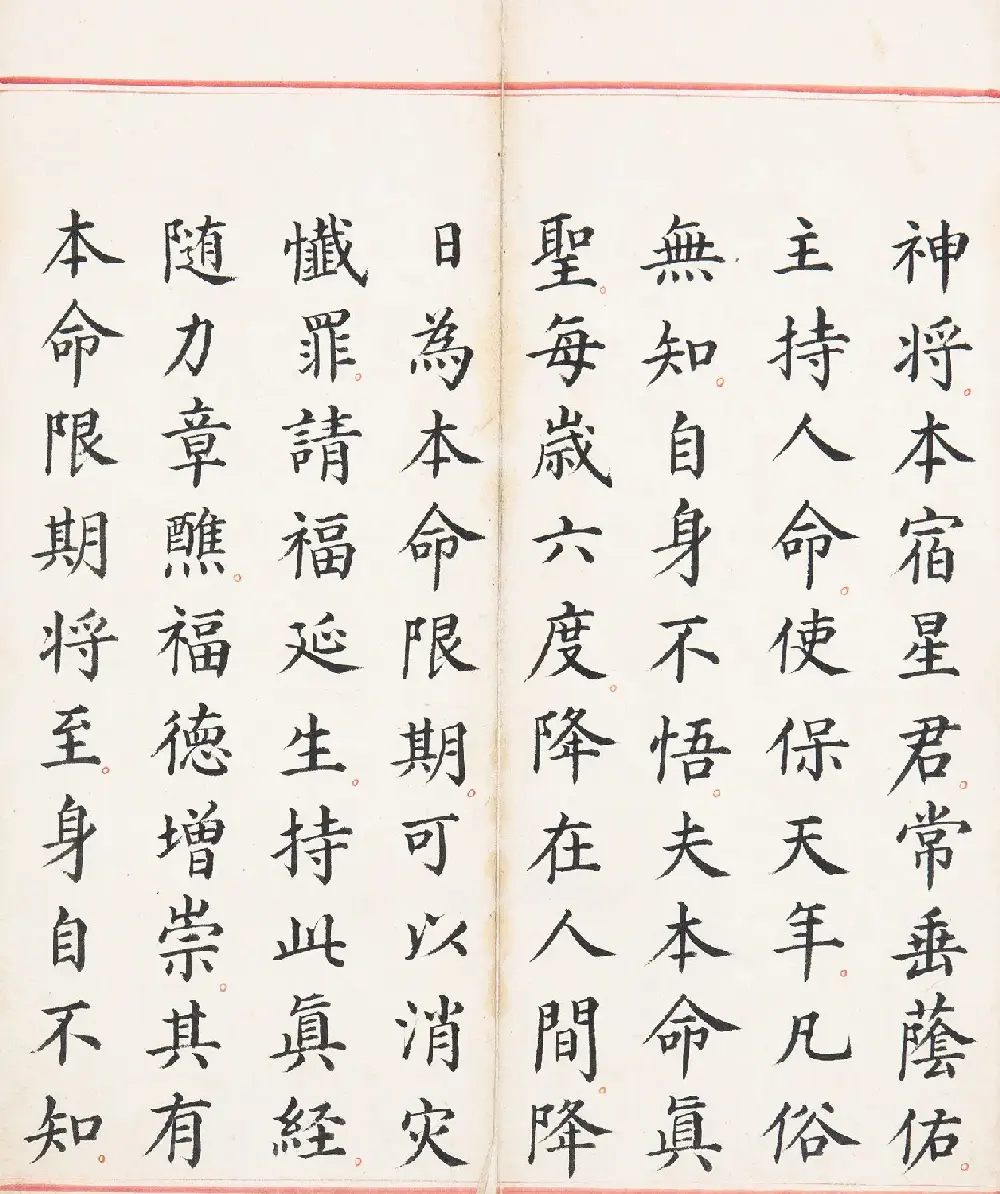 神将。本宿星君。常垂蔭佑。
主持人命。使保天年。凡俗
無知。自身不悟。夫本命眞
聖。每歳六度。降在人間。降
日為本命限期。可以消灾
懺罪。請福延生。持此眞経。
随力章醮。福德增崇。其有
本命限期将至。身自不知。